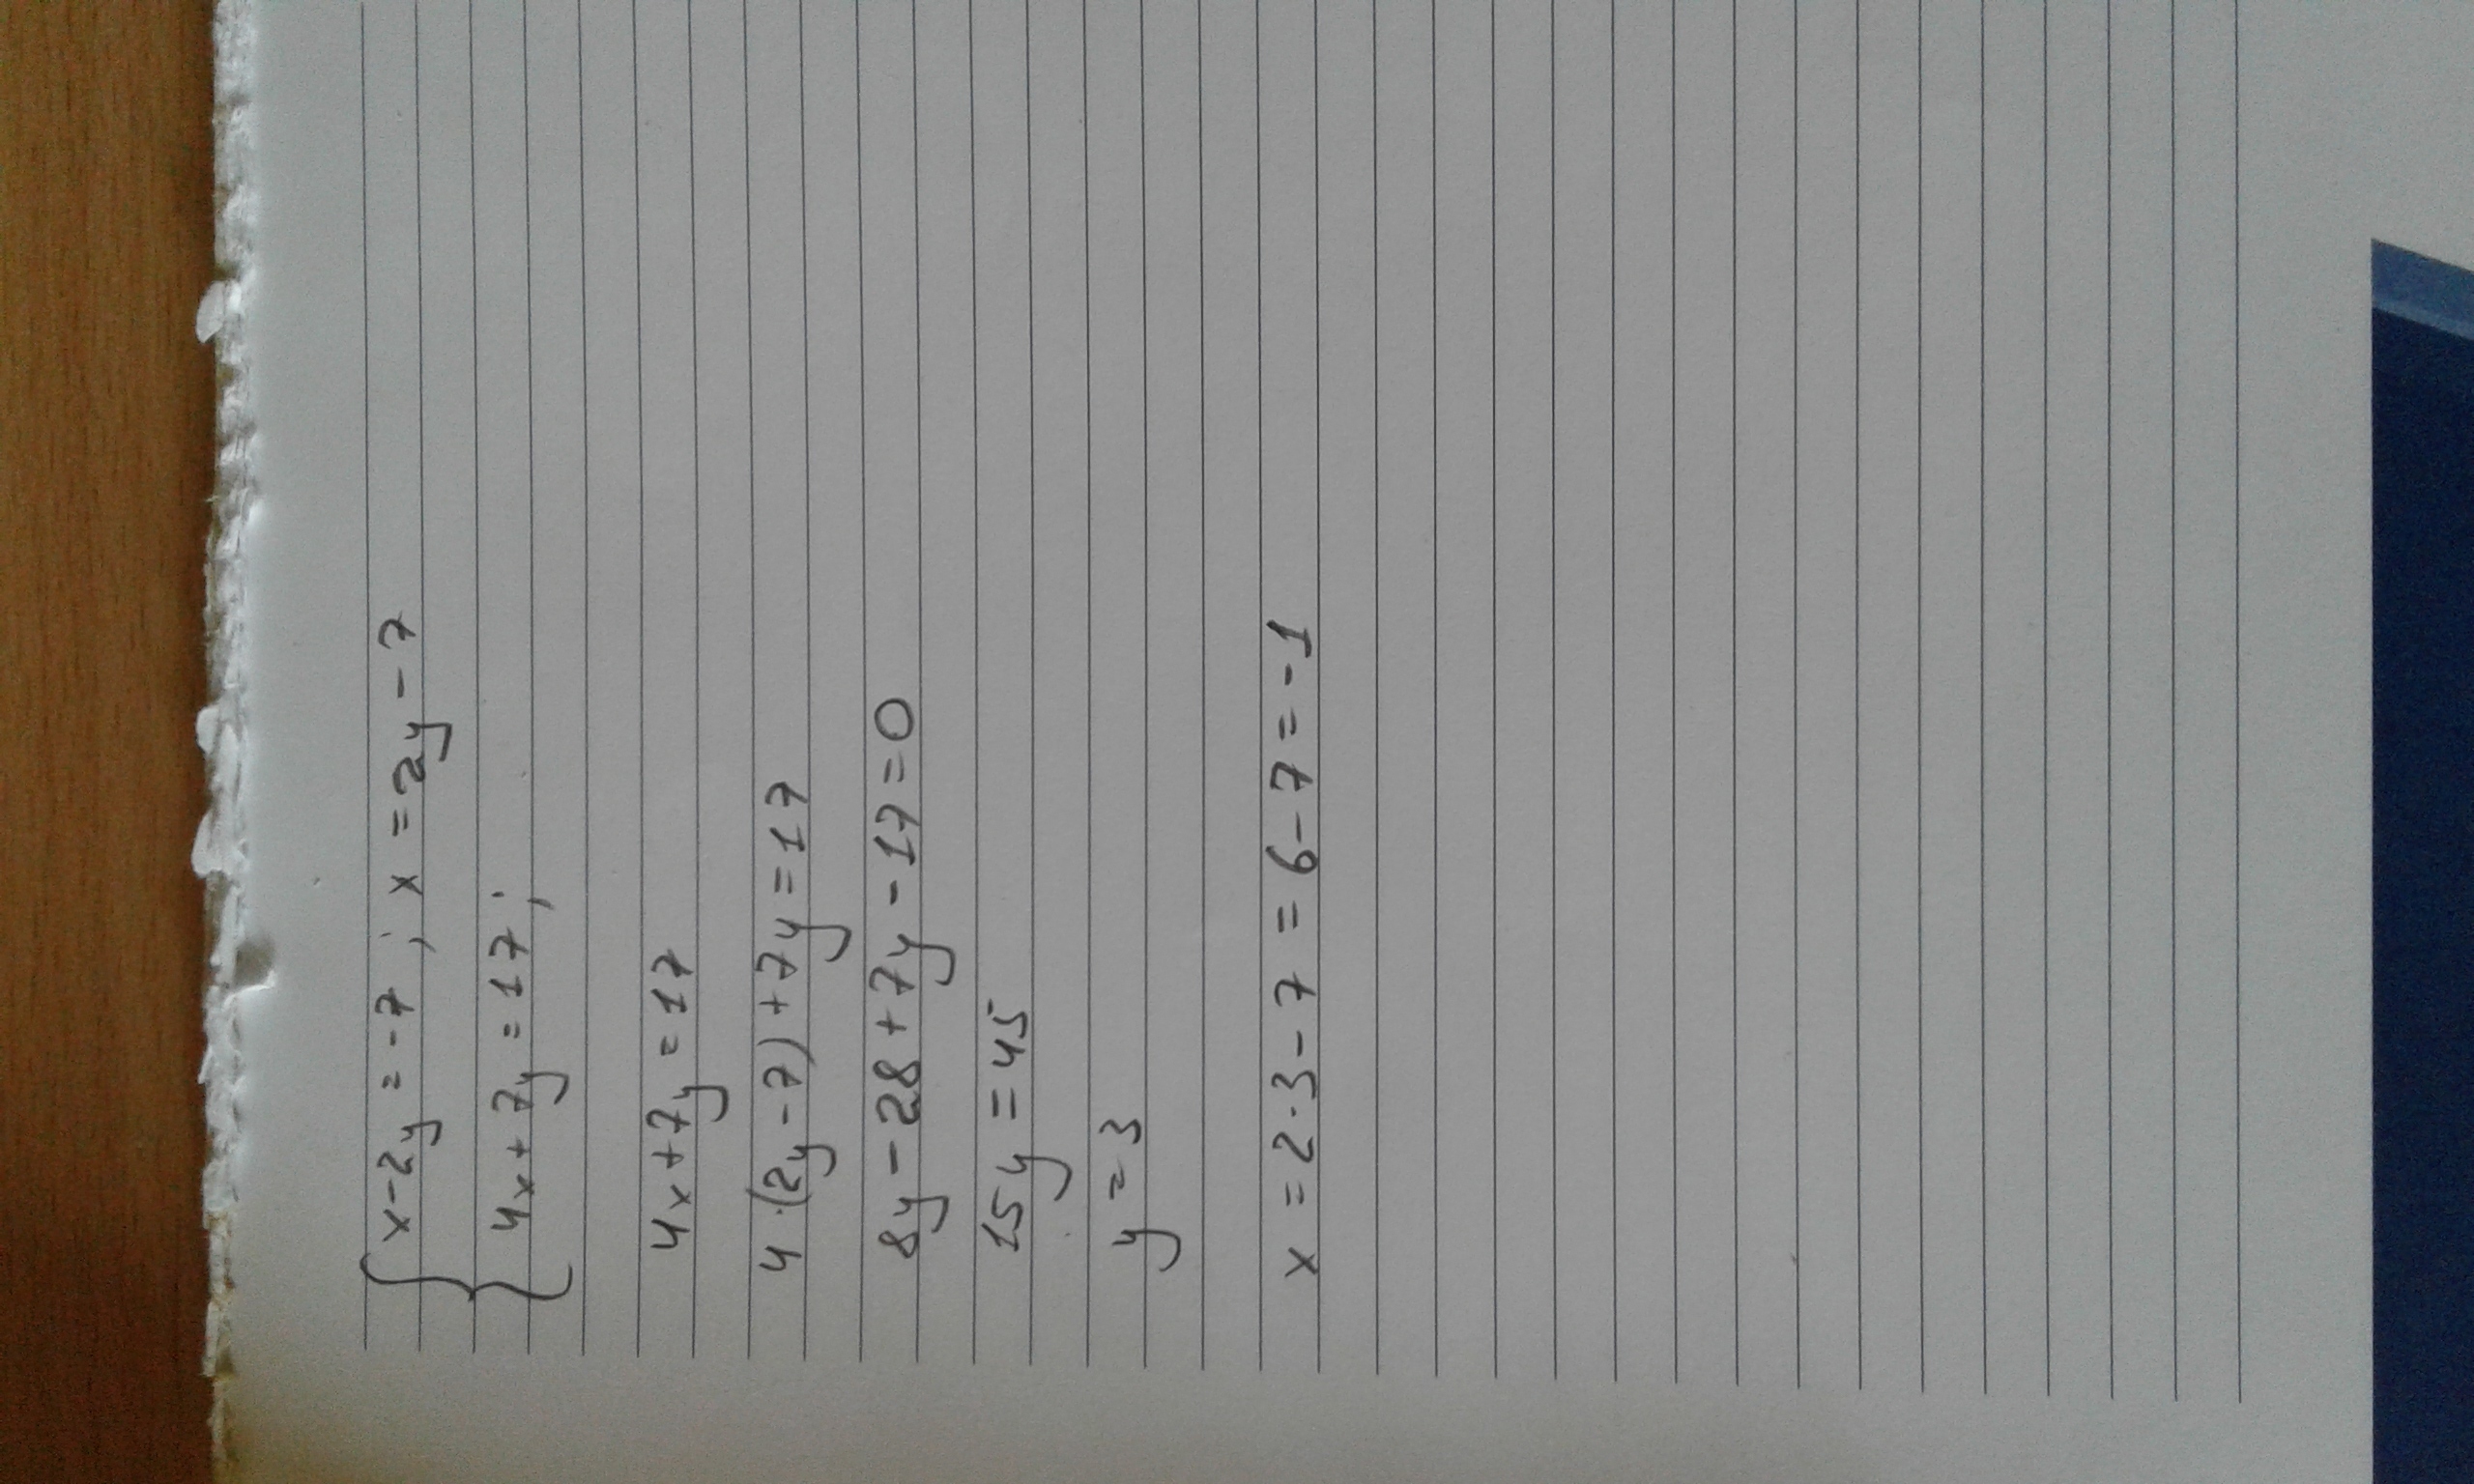 { x-2y=-7; x=2y-7
4x+7y=17;
4x+7y=17
4·(2y-7)+7y=17
8y-28+7y-17=0
15y=45
y=3
x=2·3-7=6-7=-1